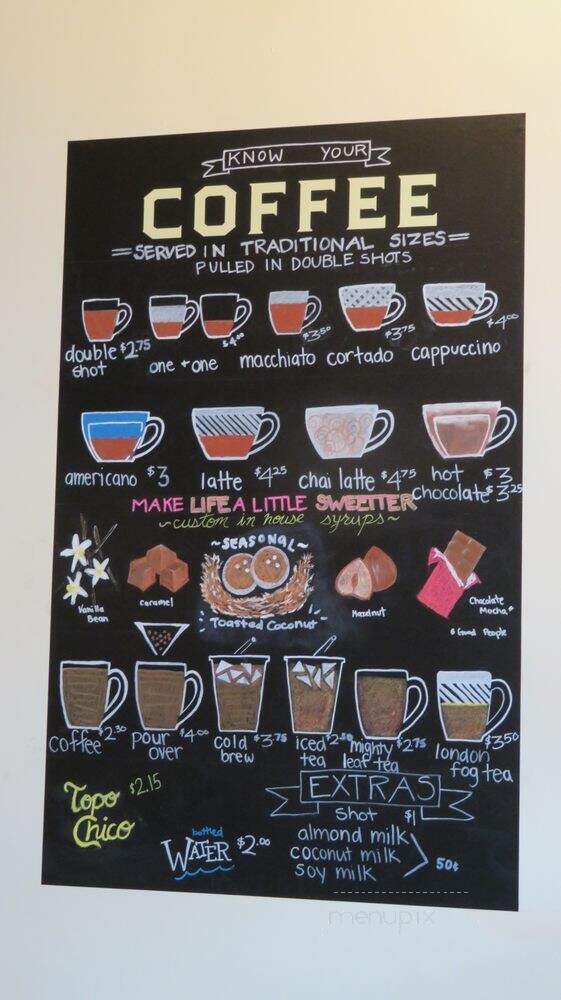 KNOW YOUR
COFFEE
=SERVED IN TRADITIONAL SIZES=
PULLED IN DOUBLE SHOTS
double shot $2.75
one + one $4.00
macchiato $3.50
cortado $3.75
cappuccino $4.00
americano $3
latte $4.25
chai latte $4.75
hot chocolate $3 $3.25
MAKE LIFE A LITTLE SWEETTER
~custom in house syrups~
Vanilla Bean
caramel
~SEASONAL~
Toasted Coconut
Hazelnut
Chocolate Mocha*
* Good People
coffee $2.30
pour over $4.00
cold brew $3.75
iced tea $2.50
mighty leaf tea $2.75
london fog tea $3.50
Topo Chico $2.15
bottled WATER $2.00
EXTRAS
Shot $1
almond milk
coconut milk
soy milk
50¢
menupix